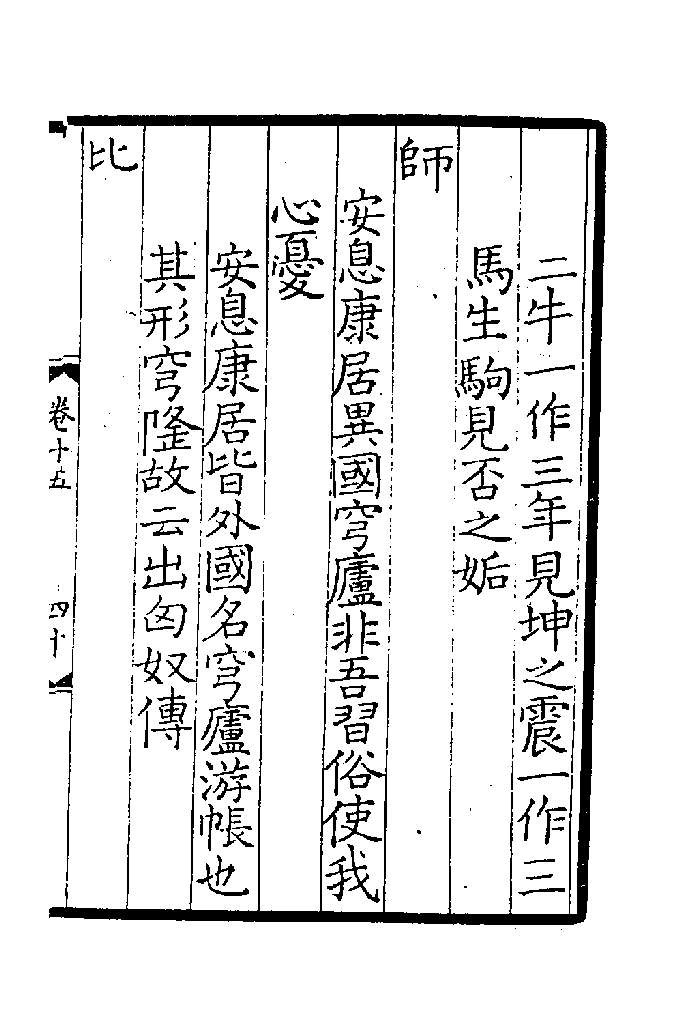 二牛一作三年見坤之震一作三
馬生駒見否之姤
師
安息康居異國穹廬非吾習俗使我
心憂
安息康居皆外國名穹廬游帳也
其形穹隆故云出匈奴傳
比
卷十五
四十